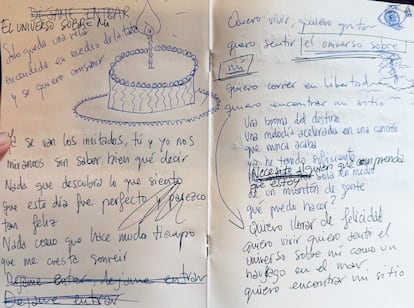 DEJAME ENTRAR
EL UNIVERSO SOBRE MÍ
Solo queda una vela
encendida en medio de la tarta
y se quiere consumir
Ya se van los invitados, tú y yo nos
miramos sin saber bien qué decir
Nada que descubra lo que siento
que este día fue perfecto y parezco
tan feliz
Nada como que hace mucho tiempo
que me cuesta sonreír
Dejame entrar dejame entrar
Dejame entrar
Quiero vivir, quiero gritar
quiero sentir el universo sobre
mí
quiero correr en libertad
quiero encontrar mi sitio
Una broma del destino
Una melodía acelerada en una canción
que nunca acaba
ya he tenido suficiente
Necesito alguien que comprenda
que estoy sola en medio
de un montón de gente
qué puedo hacer?
Quiero llorar de felicidad
quiero vivir quiero sentir el
universo sobre mí como un
naufrago en el mar
quiero encontrar mi sitio